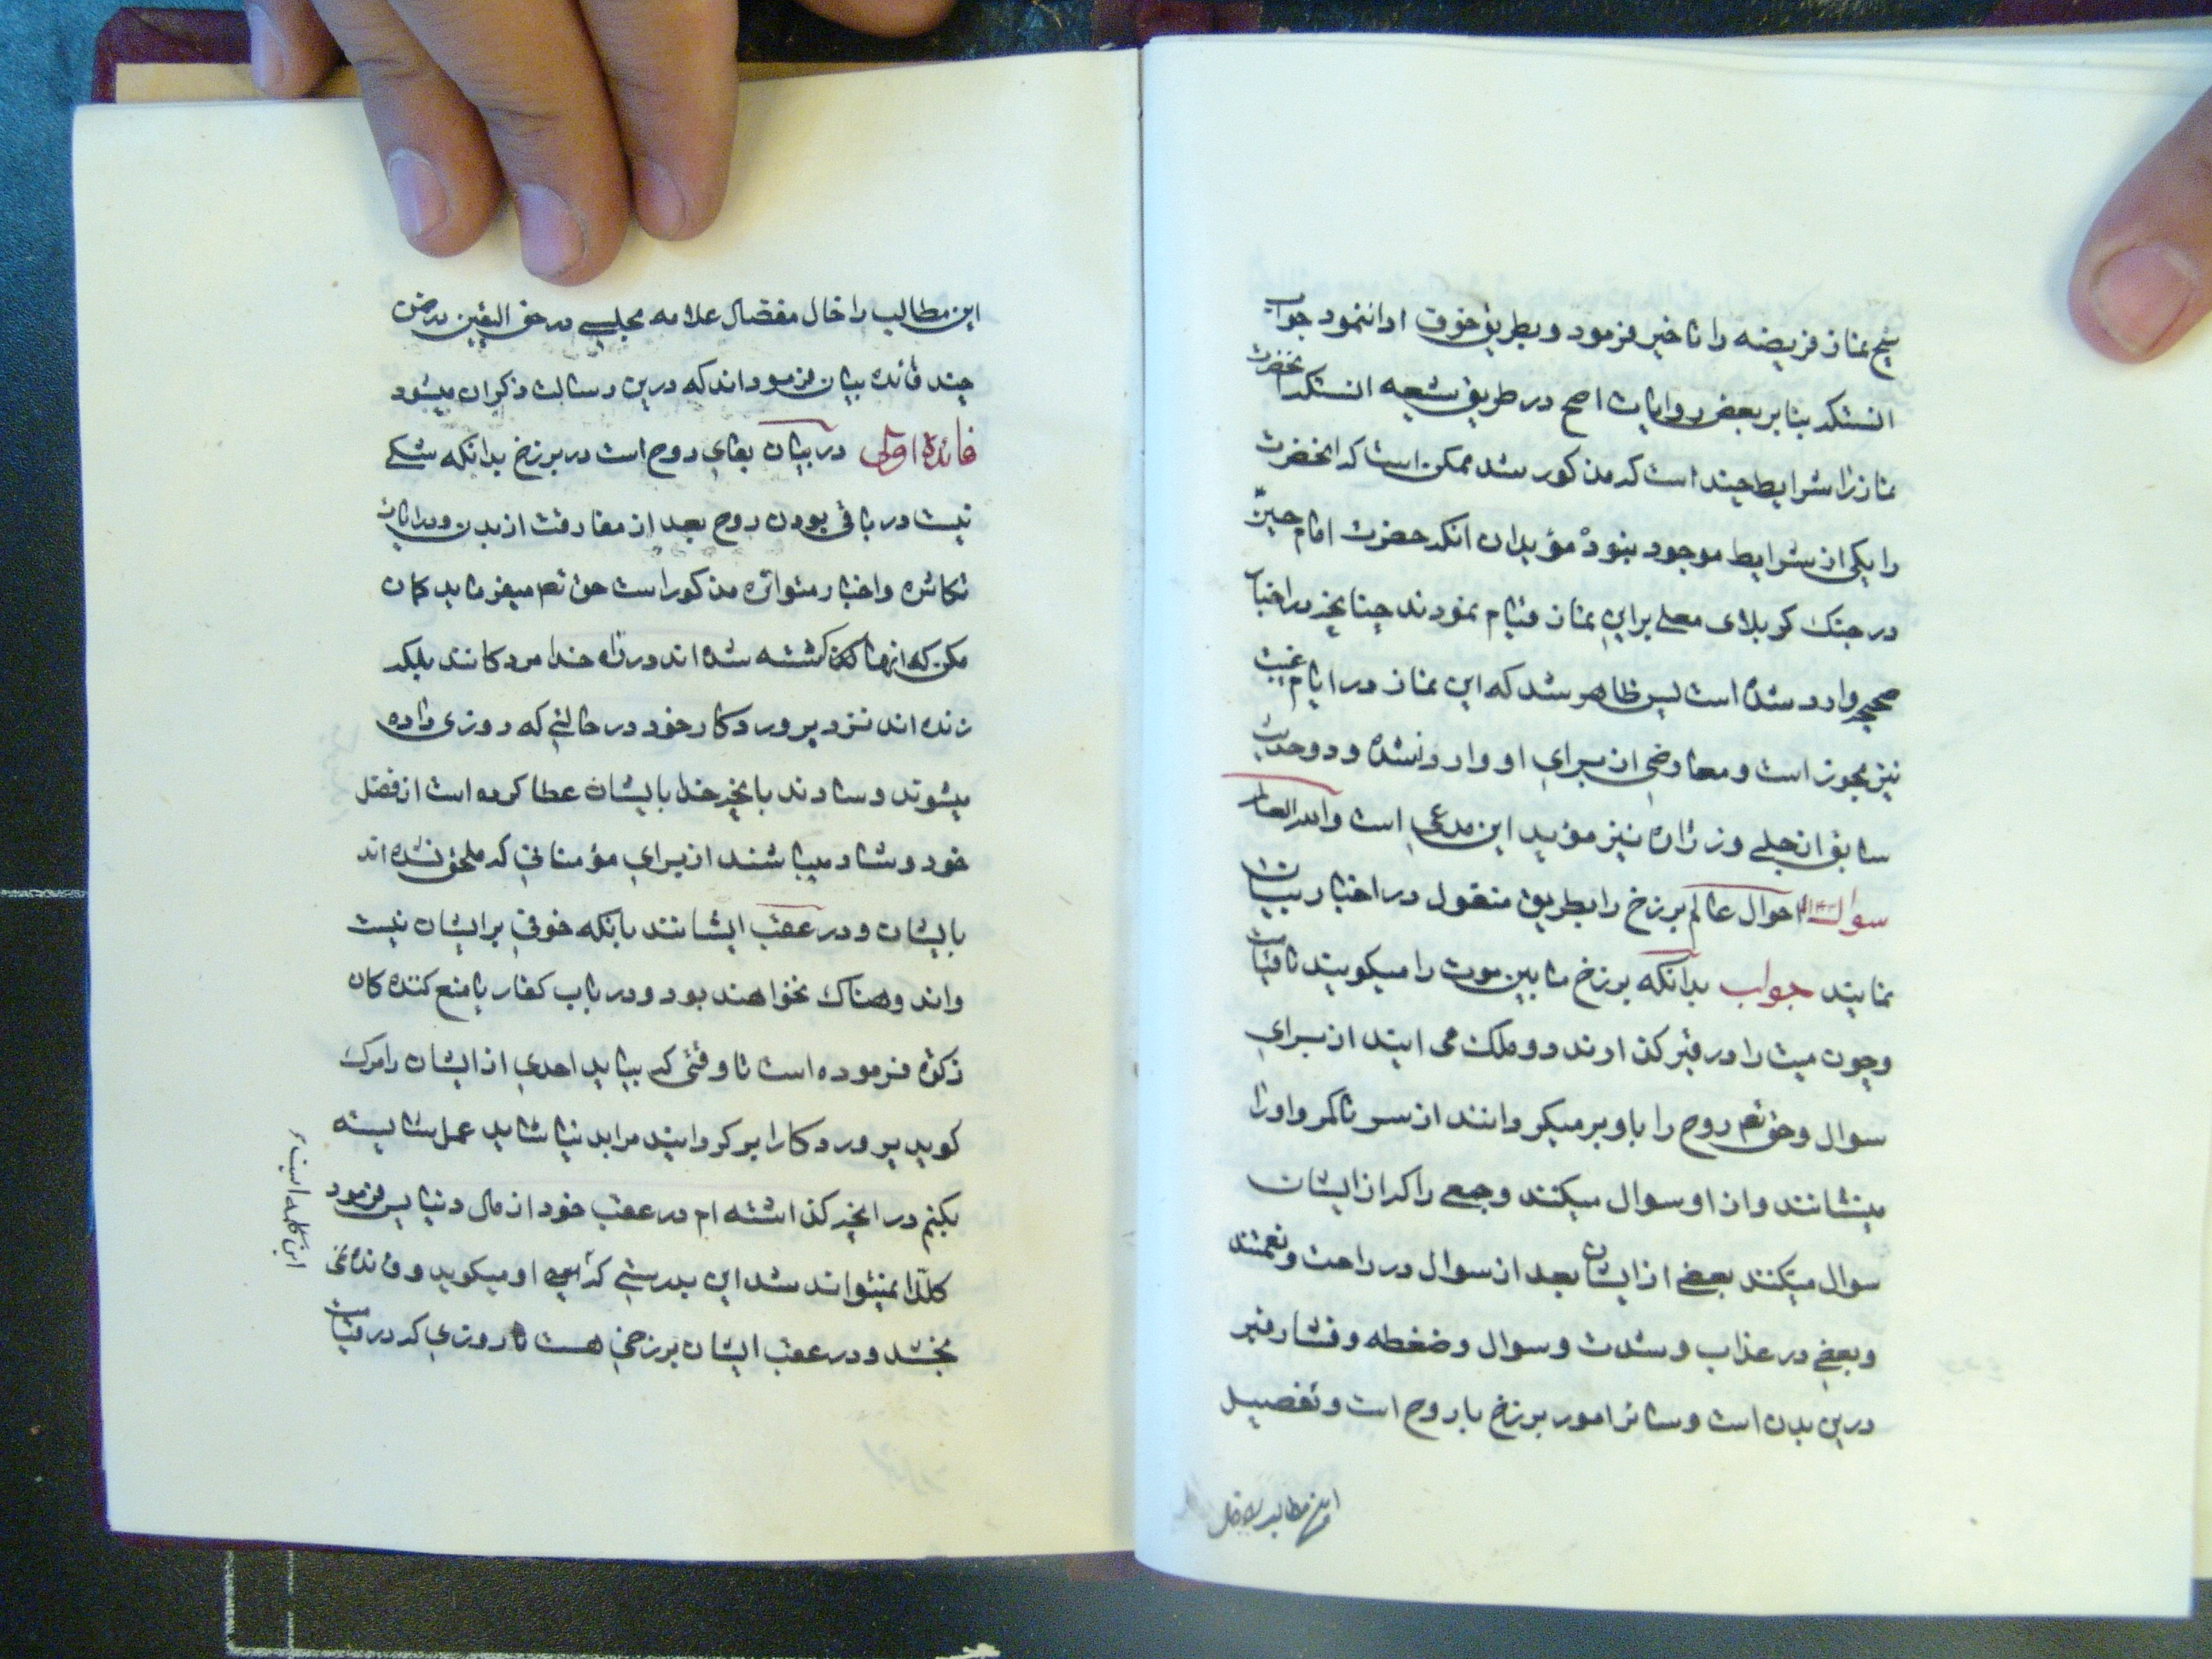 پنج نماز فریضه را تاخیر فرمود و بطریق خوف ادا ننمود جواب
انستکه بنابر بعض روایات اصح در طریق شیعه انستکه انحضرت
نماز را شرایط چند است که مذکور شد ممکن است که انحضرت
را یکی از شرایط موجود نبود مؤید ان انکه حضرت امام حسین
در جنک کربلای معلی برای نماز قیام نمودند چنانچه در اخبار
صحیح وارد شده است پس ظاهر شد که این نماز در ایام غیبت
نیز مجوز است و معارضی از برای او وارد نشده و دو حدیث
سابق از حلبی و زراره نیز مؤید این مدعی است والله العالم
سوال احوال عالم برزخ را بطریق منقول در اخبار بیان
نمایند جواب بدانکه برزخ مابین موت را میکویند تا قیامت
و چون میت را در قبر کذارند دو ملک می ایند از برای
سوال و حق تعم روح را باو بر میکردانند از سر تا کمر و او را
مینشانند و از او سوال میکنند و جمعی را که از ایشان
سوال میکنند بعضی از ایشان بعد از سوال در راحت و نعمتند
و بعضی در عذاب و شدت و سوال و ضغطه و فشار قبر
درین بدن است و سائر امور برزخ با روح است و تفصیل
این مطالب را خال
این مطالب را خال مفضال علامه مجلسی در حق الیقین در ضمن
چند فائده بیان فرموده اند که درین رسالت ذکر ان میشود
فائده اولی در بیان بقای روح است در برزخ بدانکه شکی
نیست در باقی بودن روح بعد از مفارقت از بدن و در ایات
تکاثره و اخبار متواتره مذکور است حق تعم میفرماید کمان
مکن که انها که کشته شده اند در راه خدا مردکانند بلکه
زنده اند نزد پروردکار خود در حالتی که روزی داده
میشوند و شادند بانچه خدا بایشان عطا کرده است از فضل
خود و شاد میباشند از برای مؤمنانی که ملحق نشده اند
بایشان و در عقب ایشانند بانکه خوفی بر ایشان نیست
و اندوهناک نخواهند بود و در باب کفار یا منع کننده کان
زکوة فرموده است تا وقتی که بیاید احدی از ایشان را مرک
کوید پروردکارا بر کردانید مرا بدنیا شاید عمل شایسته
بکنم در انچه کذاشته ام در عقب خود از مال دنیا پس فرمود
کلا نمیتواند شد این بدرستی که او میکوید و فائده نمی
بخشد و در عقب ایشان برزخی هست تا روزی که در قیامت
این کلمه است